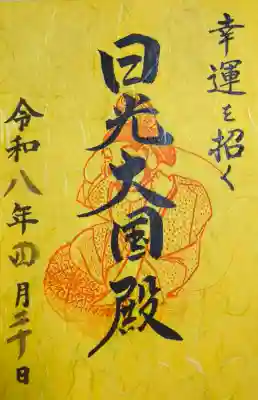 幸運を招く
日光大国殿
令和八年四月三十日